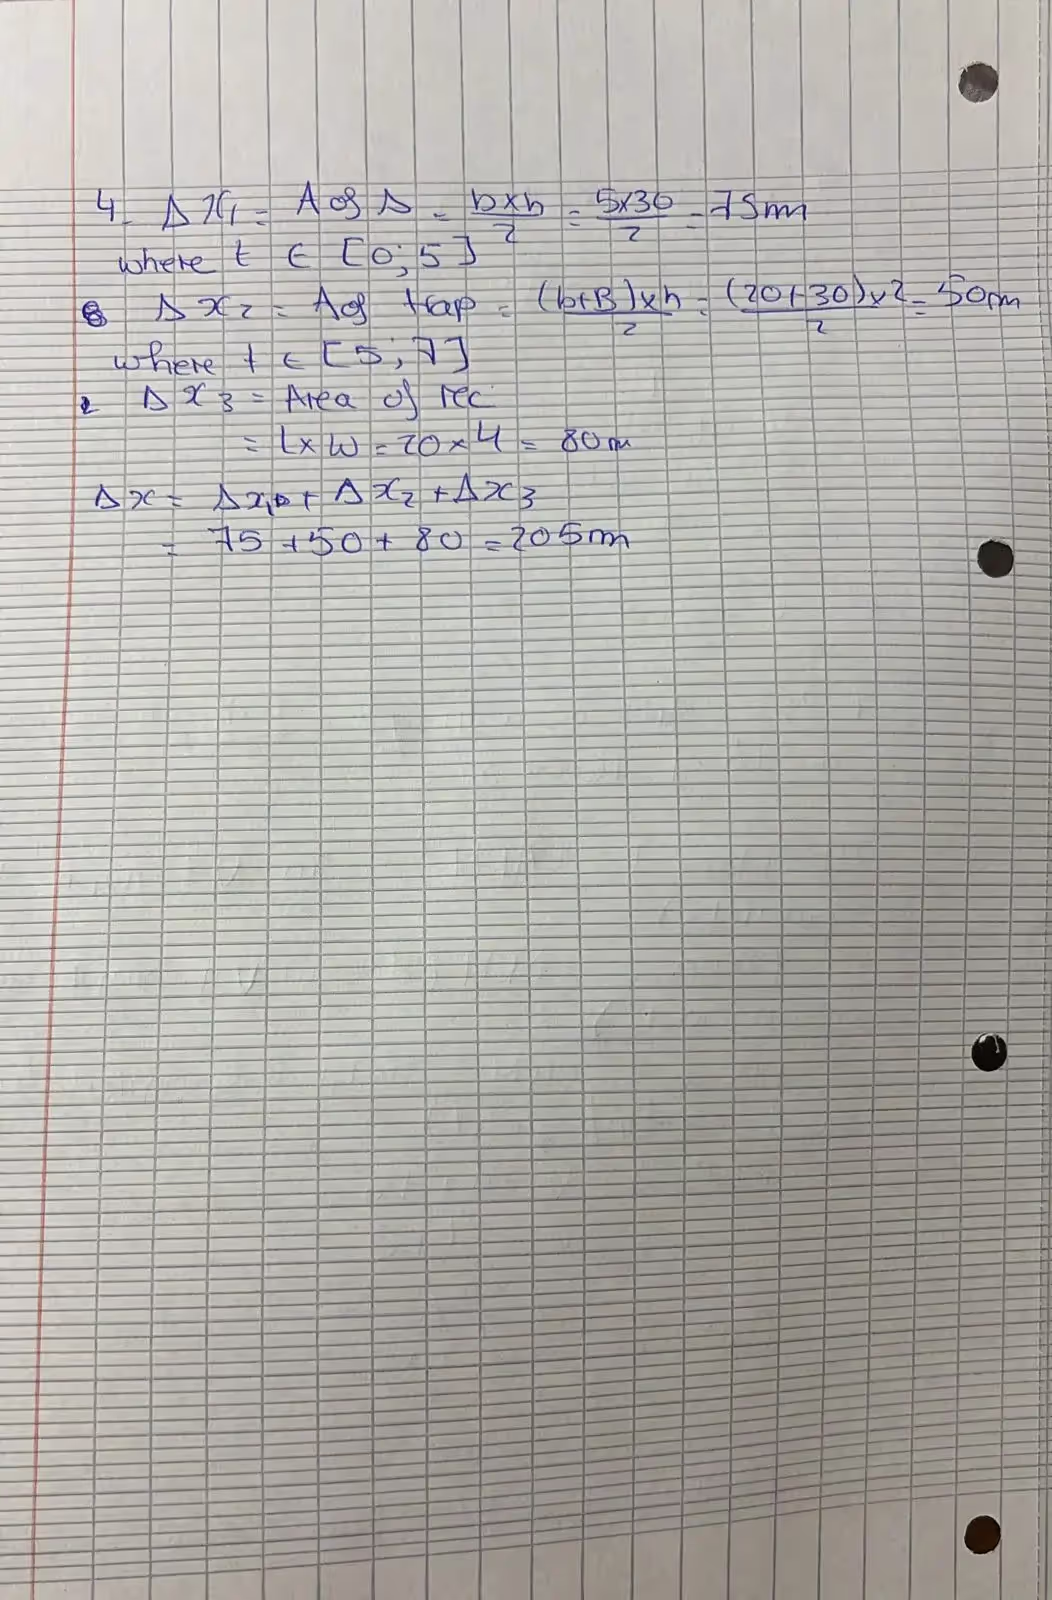 4- Δx₁ = A of Δ = b×h/2 = 5×30/2 = 75m
where t ∈ [0;5]
Δx₂ = A of trap = (b+B)×h/2 = (20+30)×2/2 = 50m
where t ∈ [5;7]
Δx₃ = Area of rec
= L×W = 20×4 = 80m
Δx = Δx₁ + Δx₂ + Δx₃
= 75 + 50 + 80 = 205m